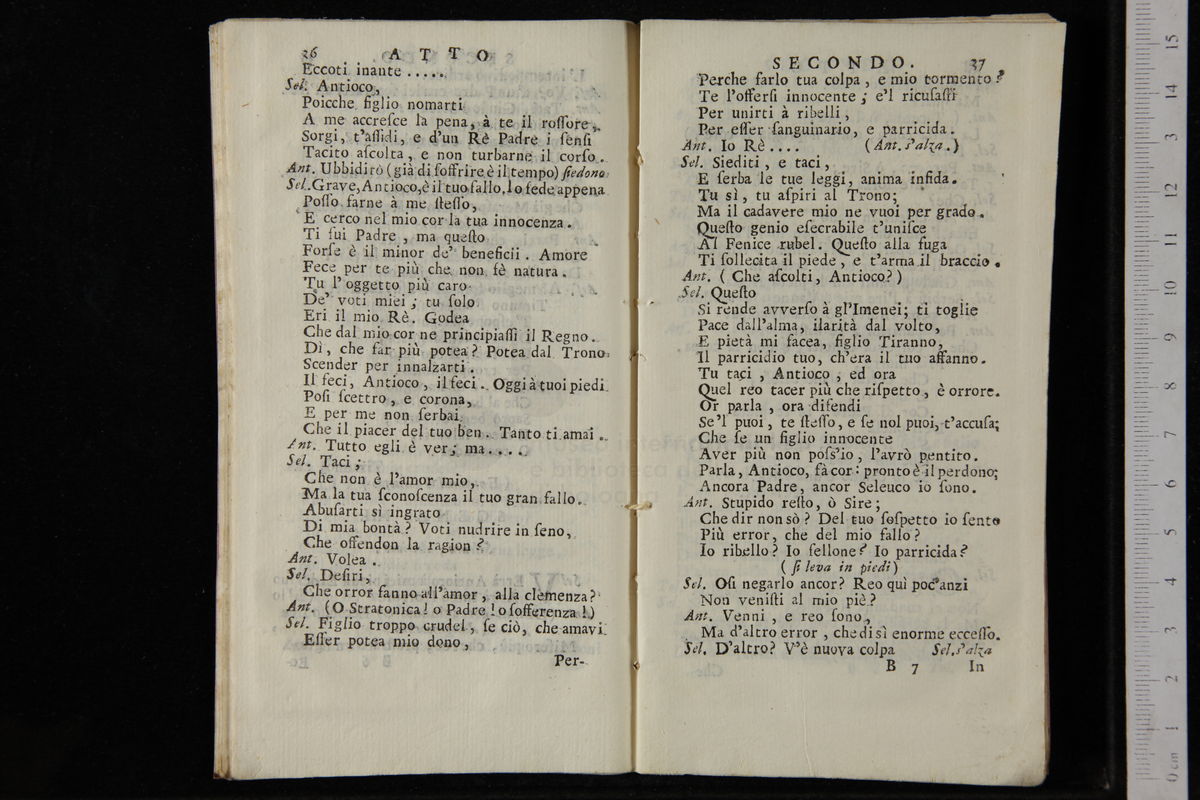 36 ATTO
Eccoti inante .....
Sel. Antioco,
Poicche figlio nomarti
A me accreſce la pena, à te il roſſore,
Sorgi, t'aſſidi, e d'un Rè Padre i ſenſi
Tacito aſcolta, e non turbarne il corſo.
Ant. Ubbidirò (già di ſoffrire è il tempo) ſiedono
Sel. Grave, Antioco, è il tuo fallo, Io fede appena
Poſſo farne à me ſteſſo,
E cerco nel mio cor la tua innocenza.
Ti fui Padre, ma queſto
Forſe è il minor de' beneficii. Amore
Fece per te più che non fè natura.
Tu l'oggetto più caro
De' voti miei; tu ſolo
Eri il mio Rè. Godea
Che dal mio cor ne principiaſſi il Regno.
Dì, che far più potea? Potea dal Trono
Scender per innalzarti.
Il feci, Antioco, il feci. Oggi à tuoi piedi
Poſi ſcettro, e corona,
E per me non ſerbai
Che il piacer del tuo ben. Tanto ti amai.
Ant. Tutto egli è ver; ma....
Sel. Taci;
Che non è l'amor mio,
Ma la tua ſconoſcenza il tuo gran fallo.
Abuſarti sì ingrato
Di mia bontà? Voti nudrire in ſeno,
Che offendon la ragion?
Ant. Volea.
Sel. Deſiri,
Che orror fanno all'amor, alla clemenza?
Ant. (O Stratonica! o Padre! o ſofferenza!)
Sel. Figlio troppo crudel, ſe ciò, che amavi
Eſſer potea mio dono,
Per-
SECONDO. 37
Perche farlo tua colpa, e mio tormento?
Te l'offerſi innocente; e'l ricuſaſti
Per unirti à ribelli,
Per eſſer ſanguinario, e parricida.
Ant. Io Rè.... (Ant. s'alza.)
Sel. Siediti, e taci,
E ſerba le tue leggi, anima infida.
Tu sì, tu aſpiri al Trono;
Ma il cadavere mio ne vuoi per grado.
Queſto genio eſecrabile t'uniſce
Al Fenice rubel. Queſto alla fuga
Ti ſollecita il piede, e t'arma il braccio.
Ant. (Che aſcolti, Antioco?)
Sel. Queſto
Si rende avverſo à gl'Imenei; ti toglie
Pace dall'alma, ilarità dal volto,
E pietà mi facea, figlio Tiranno,
Il parricidio tuo, ch'era il tuo affanno.
Tu taci, Antioco, ed ora
Quel reo tacer più che riſpetto, è orrore.
Or parla, ora difendi
Se'l puoi, te ſteſſo, e ſe nol puoi, t'accuſa;
Che ſe un figlio innocente
Aver più non poſs'io, l'avrò pentito.
Parla, Antioco, fà cor: pronto è il perdono;
Ancora Padre, ancor Seleuco io ſono.
Ant. Stupido reſto, ò Sire;
Che dir non sò? Del tuo ſoſpetto io ſento
Più error, che del mio fallo?
Io ribello? Io fellone? Io parricida?
(ſi leva in piedi)
Sel. Oſi negarlo ancor? Reo quì poc'anzi
Non veniſti al mio piè?
Ant. Venni, e reo ſono,
Ma d'altro error, che di sì enorme ecceſſo.
Sel. D'altro? V'è nuova colpa Sel. s'alza
B 7 In
15
14
13
12
11
10
9
8
7
6
5
4
3
2
1
0 cm